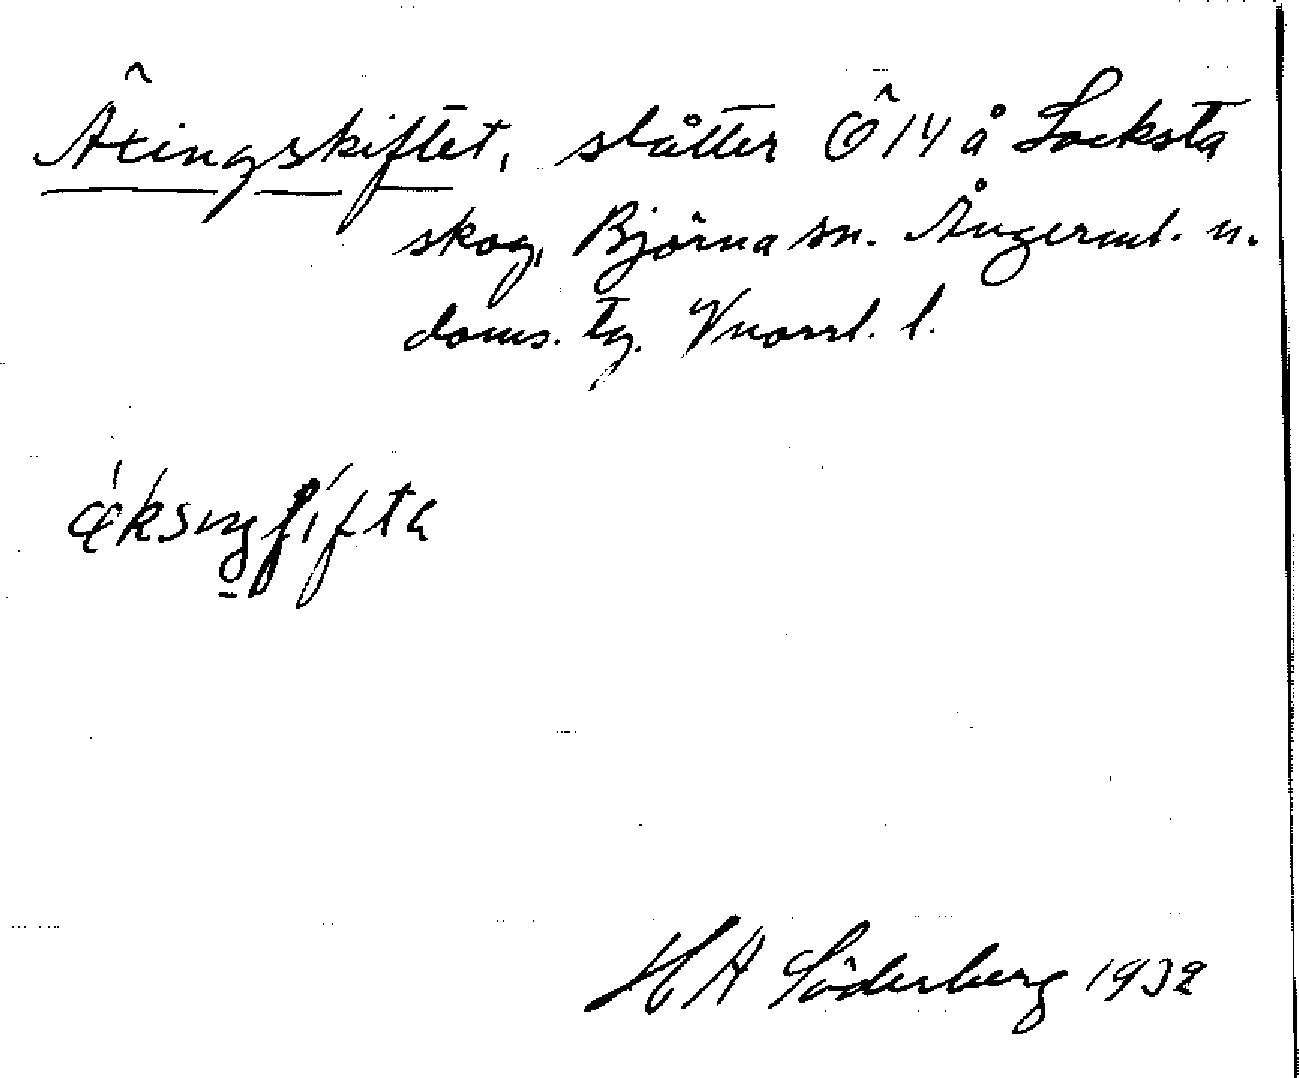 Äxingskiftet, slåtter Ö 14 å Locksta
skog, Björna sn. Ångerml. n.
doms. tg. Vnorrl. l.
HA Söderberg 1932